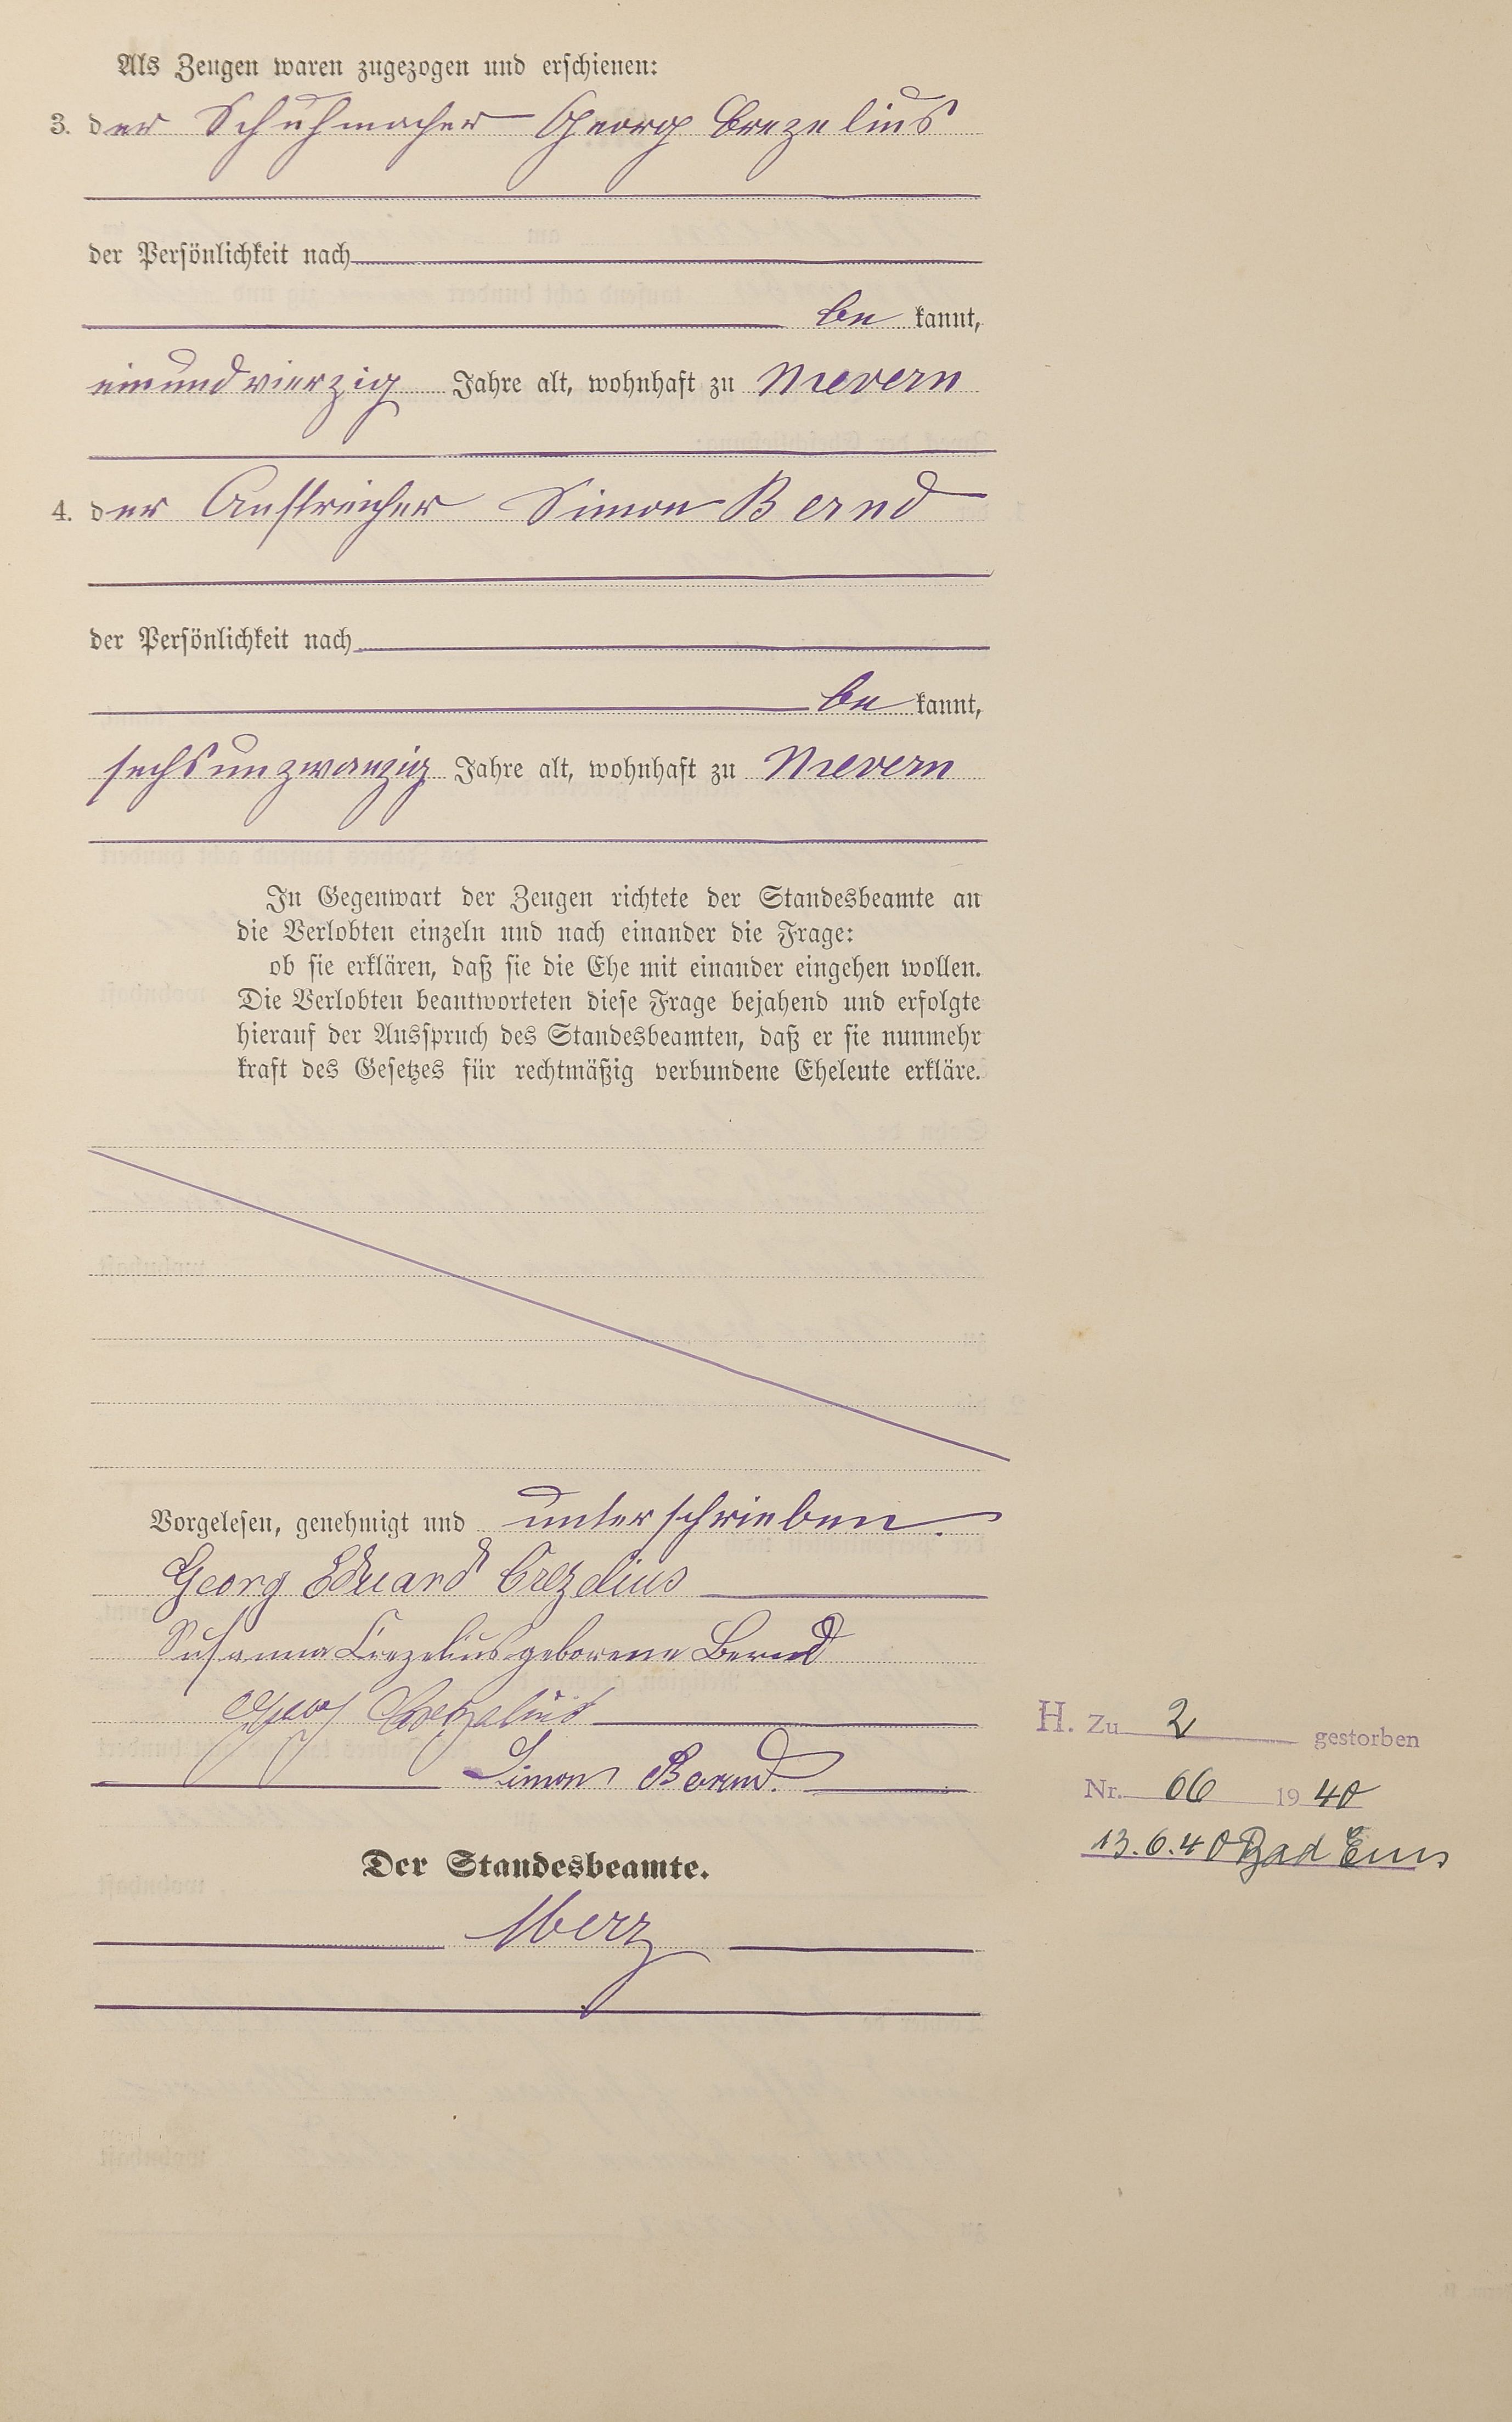 Als Zeugen waren zugezogen und erschienen:
3. der Schuhmacher Georg Crezelius
der Persönlichkeit nach
be kannt,
einundvierzig Jahre alt, wohnhaft zu Nievern
4. der Anstreicher Simon Bernd
der Persönlichkeit nach
be kannt,
sechsunzwanzig Jahre alt, wohnhaft zu Nievern
In Gegenwart der Zeugen richtete der Standesbeamte an
die Verlobten einzeln und nach einander die Frage:
ob sie erklären, daß sie die Ehe mit einander eingehen wollen.
Die Verlobten beantworteten diese Frage bejahend und erfolgte
hierauf der Ausspruch des Standesbeamten, daß er sie nunmehr
kraft des Gesetzes für rechtmäßig verbundene Eheleute erkläre.
Vorgelesen, genehmigt und unterschrieben.
Georg Eduard Crezelius
Susanna Crezelius geborene Bernd
Georg Crezelius
Simon Bernd.
H. Zu 2 gestorben
Nr. 66 1940
13.6.40 Bad Ems
Der Standesbeamte.